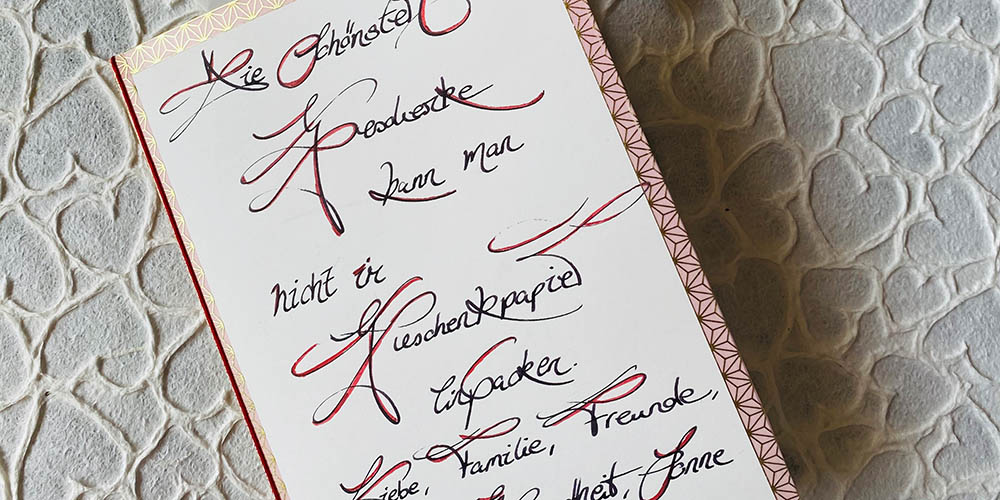 Die Schönsten
Geschenke
kann man
nicht in
Geschenkpapier
einpacken.
Liebe, Familie, Freunde,
Sonne